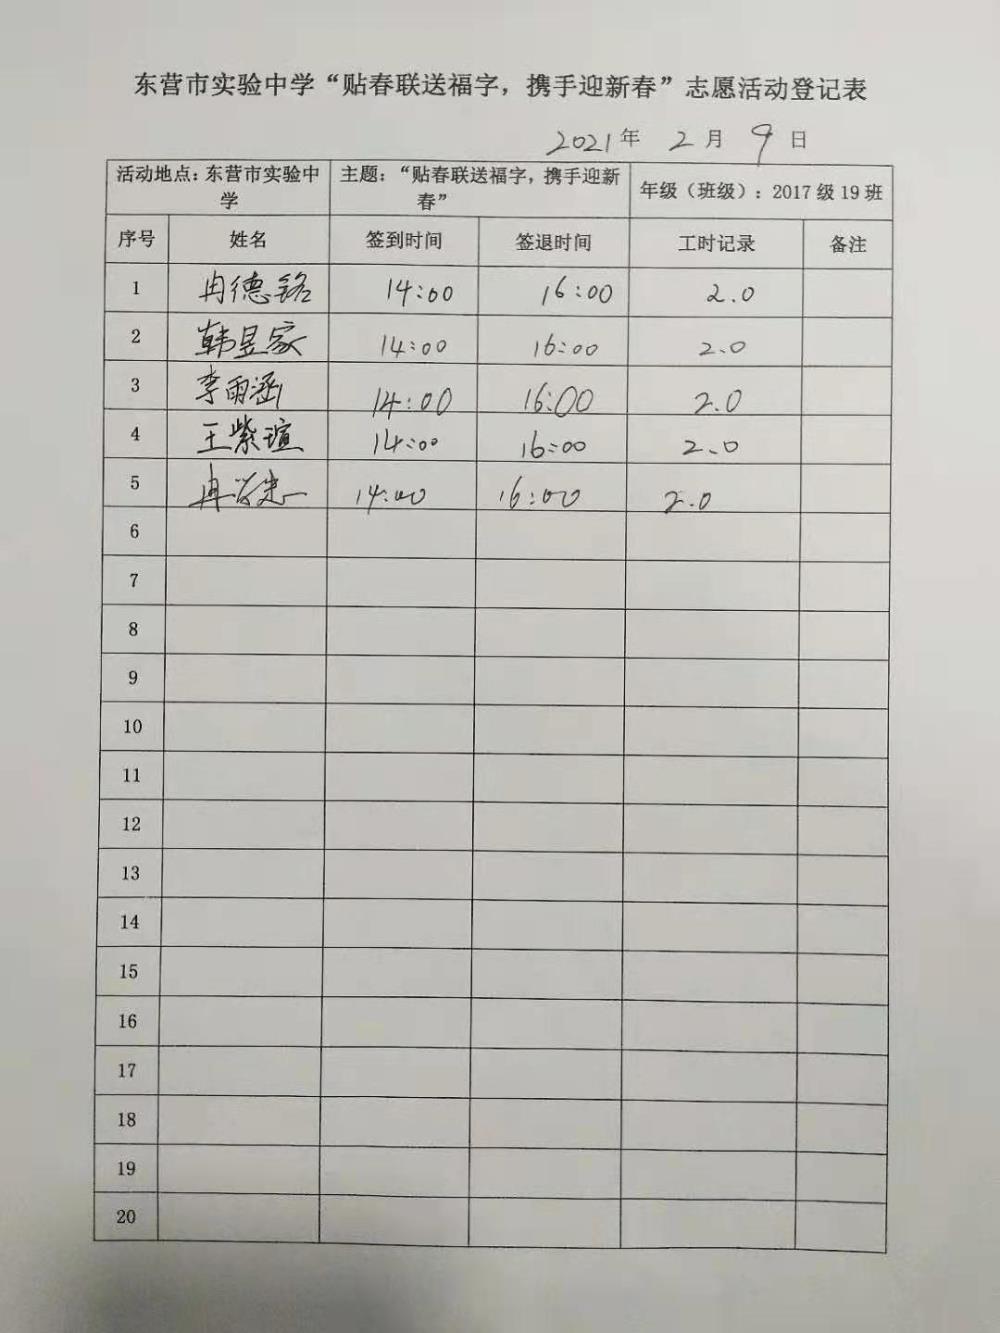 东营市实验中学“贴春联送福字，携手迎新春”志愿活动登记表
2021年 2月 9日
活动地点：东营市实验中学 主题：“贴春联送福字，携手迎新春” 年级（班级）：2017级19班
序号 姓名 签到时间 签退时间 工时记录 备注
1 冉德铭 14:00 16:00 2.0
2 韩昱家 14:00 16:00 2.0
3 李雨涵 14:00 16:00 2.0
4 王紫瑄 14:00 16:00 2.0
5 冉 14:00 16:00 2.0
6
7
8
9
10
11
12
13
14
15
16
17
18
19
20